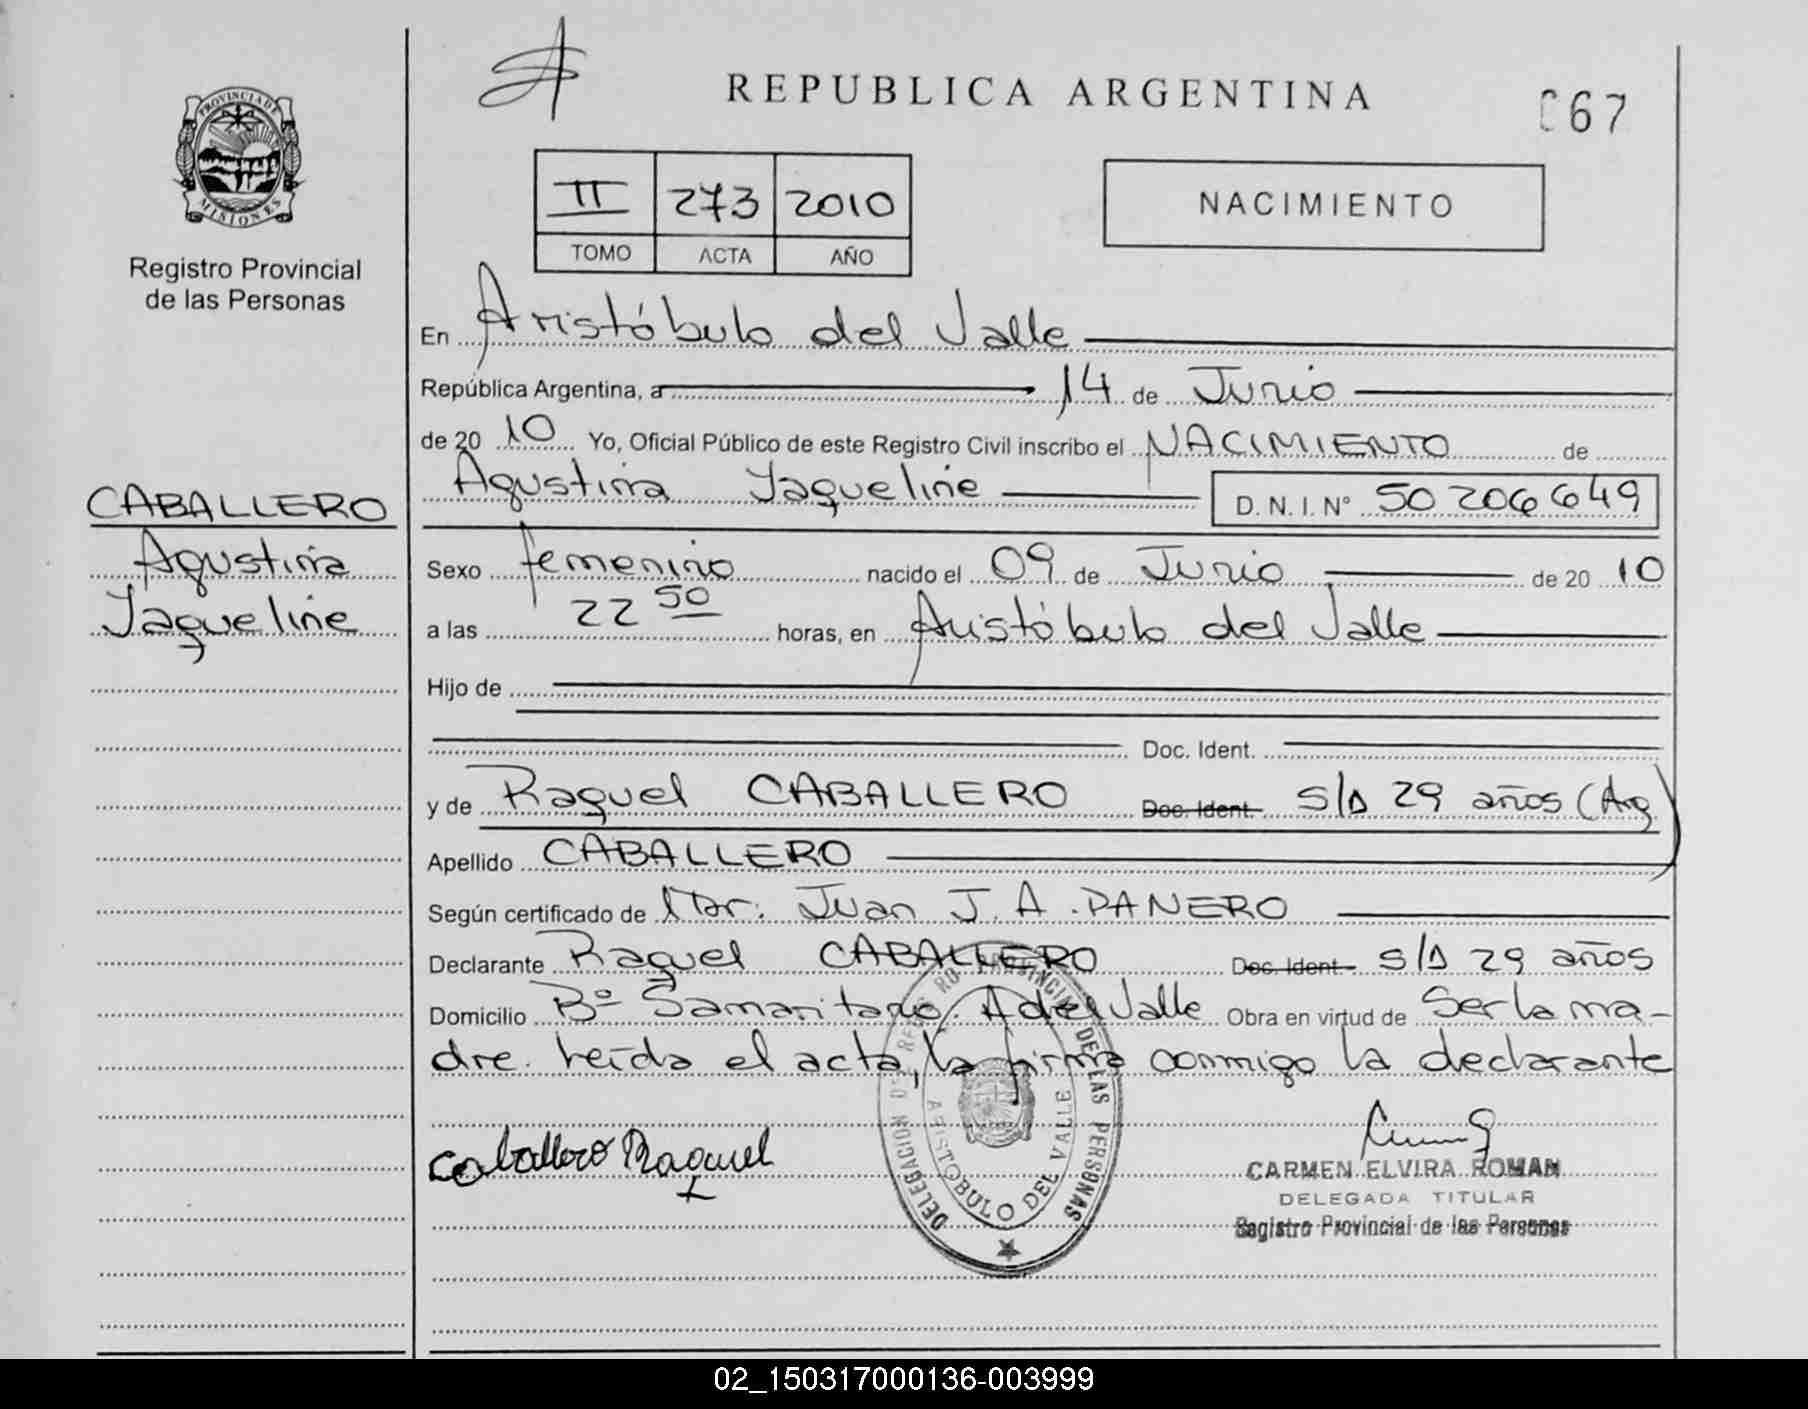 REPUBLICA ARGENTINA
067
PROVINCIA DE
MISIONES
Registro Provincial
de las Personas
II 273 2010
TOMO ACTA AÑO
NACIMIENTO
En Aristóbulo del Valle
República Argentina, a 14 de Junio
de 2010 Yo, Oficial Público de este Registro Civil inscribo el NACIMIENTO de
Agustina Jaqueline D. N. I. N° 50 206 649
CABALLERO
Agustina
Jaqueline
Sexo femenino nacido el 09 de Junio de 2010
a las 22 50 horas, en Aristóbulo del Valle
Hijo de
Doc. Ident.
y de Raquel CABALLERO Doc. Ident. S/D 29 años (Arg)
Apellido CABALLERO
Según certificado de Juan J. A. PANERO
Declarante Raquel CABALLERO Doc. Ident. S/D 29 años
Domicilio B° Samaritano. A del Valle Obra en virtud de Ser la ma-
dre. Leída el acta, la firma conmigo la declarante
Caballero Raquel
DELEGACION DEL REGISTRO PROVINCIAL DE LAS PERSONAS
ARISTOBULO DEL VALLE
CARMEN ELVIRA ROMAN
DELEGADA TITULAR
Registro Provincial de las Personas
02_150317000136-003999